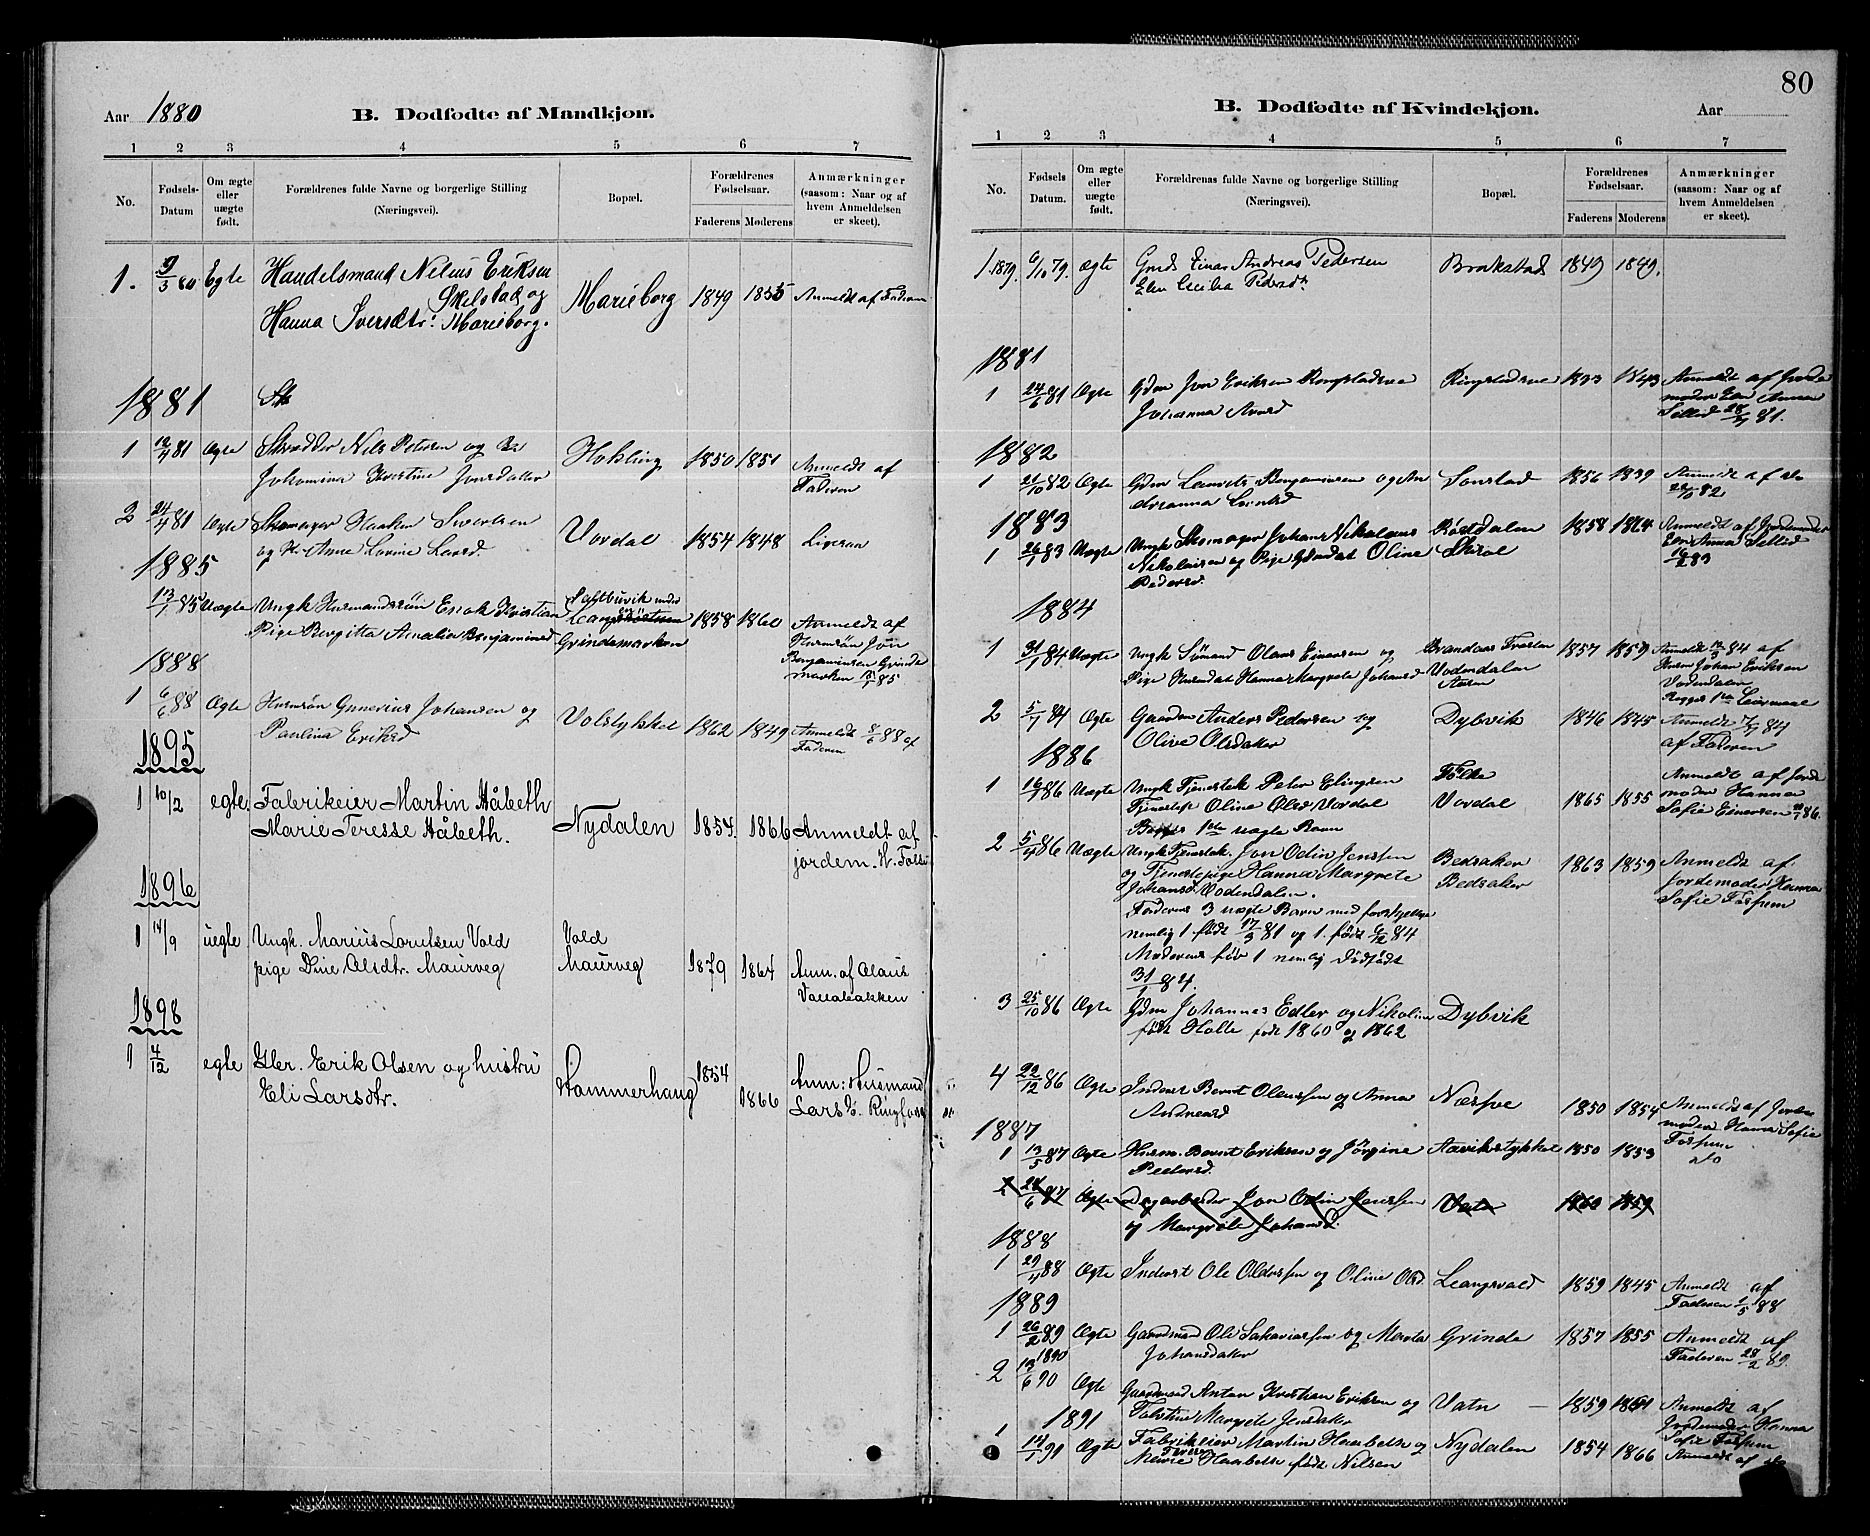 80
Aar 1880
B. Dødfødte af Mandkjøn.
1 2 3 4 5 6 7
No.
Fødsels-
Datum
Om ægte
eller
uægte
født.
Forældrenes fulde Navne og borgerlige Stilling
(Næringsvei).
Bopæl.
Forældrenes
Fødselsaar.
Faderens Møderens
Anmærkninger
(saasom: Naar og af
hvem Anmeldelsen
er skeet).
1. 9/3 80 Egte Handelsmand Nelius Eriksen
Skelstad og
Hanna Iversdtr: Marieborg.
Marieborg 1849 1855 Anmeldt af Faderen
1881
1 12/4 81 Ægte Skrædder Nils Petersen og
Johannina Kristine Jonsdatter
Hokling 1850 1851 Anmeldt af
Faderen
2 24/4 81 Ægte Skomager Haaken Sivertsen
og H. Anne Lovine Larsd.
Vordal 1854 1848 Ligesaa
1885
13/1 85 Uægte Ungk Husmandssøn Enok Kristian
Pige Bergitta Amalia Benjaminsd
Saltbuvik under
Grindemarken
1858 1860 Anmeldt af
Husmsøn Jon
Benjaminsen Grinde
marken 15/1 85
1888
1 6/6 88 Ægte Husmsøn Gunerius Johansen og
Paulina Eriksd
Volstykket 1862 1849 Anmeldt 8/6 88 af
Faderen
1895
1 10/2 egte. Fabrikeier Martin Håbeth
Marie Teresse Håbeth.
Nydalen 1854. 1866 Anmeldt af
jordem. H.
1896
1 14/9 uegte Ungk. Marius Lorntsen Vold
pige Dine Olsdtr. Maurveg
Vold
Maurveg
1879 1864 Anm. af Olaus
1898
1 4/12 egte Gbr. Erik Olsen og hustru
Eli Larsdtr.
Hammerhaug 1854
1866
Anm: Husmand
Lars
B. Dødfødte af Kvindekjøn.
Aar
1 2 3 4 5 6 7
No.
Fødsels
Datum.
Om ægte
eller
uægte
født.
Forældrenas fulde Navne og borgerlige Stilling
(Næringsvei).
Bopæl.
Forældrenes
Fødselsaar.
Faderens Moderens
Anmærkninger
(saasom: Naar og af
hvem Anmeldelsen
er skeet).
1. 1879. 6/10 79. ægte Gmd. Einar Andreas Pedersen
Elen Cecilia Pedersdtr
Brakstad 1849 1849.
1881
1 24/6 81 Ægte Gdm Jon Eriksen
Johanna
1833 1843 Anmeldt af Jorde
moder Elen Anna
1882
1 21/10 82 Ægte Gdm Laurits Benjaminsen og An
dreanna
1856 1839 Anmeldt af do
1883
1 26/1 83 Uægte Ungk Skomager Johan Nikolaus
Nikolaisen og Pige Oline
Pedersd.
1858 1864 Anmeldt af Jordemoder
Elen Anna
1884
1 31/1 84 Uægte Ungk Sömand Olaus Einersen og
Pige Hanna Margrete Johansd
Vodendalen
1857 1859 Anmeldt 12/3 84 af
Husm Johan Eriksen
Vodendalen
2 5/7 84 Ægte Gaardm Anders Pedersen og
Olive Olsdater
Dybvik 1846 1845 Anmeldt 7/7 84
af Faderen
1886
1 16/1 86 Uægte Ungk Tjenestek Peter Elingsen
Oline Olsd Vordal
1ste uægte Barn
Vordal 1865 1855 Anmeldt af Jorde
moder Hanna
Sofie Einersen
2 5/4 86 Uægte Ungk Tjenestek. Jon Odin Jenssen
og Tjenestepige Hanna Margrete
Johansd Vodendalen.
Faderens 3 uægte Barn med forskjellige
nemlig 1 födt 17/3 81 og 1. födt 6/12 84
Moderens för 1 nemlig dödfödt
31/1 84.
Bedsaker
Bedsaker
1863 1859 Anmeldt af
Jordemoder Hanna
Sofie Fossum
3 25/10 86 Ægte Gdm Johannes Edler og Nikoline
födt Holte födt 1860 og 1862
Dybvik
4 22/12 86 Ægte Inderst Bernt Olaussen og Anna
Andreasd
1850 1854 Anmeldt af Jorde
moder Hanna Sofie
Fossum
1887
1 13/5 87 Ægte Husm. Bernt Eriksen og Jörgine
Pedersd.
Aavikstykket 1850 1853 do
2 24/6 87 Ægte Dagarbeider Jon Odin Jenssen
og Margrete Johansd.
Vatn 1860 1859
1888
1 29/4 88 Ægte Inderst Ole Olaussen og Oline Olsd
Leangsvald 1859 1845 Anmeldt af
Faderen 1/5 88
1889
1 26/2 89 Ægte Gaardmand Ole Sakariassen og Marta
Johansdater
Grinde 1857 1855 Anmeldt af
Faderen 28/2 89.
1890
2 13/6 90 Ægte Gaardmand Anton Kristian Eriksen og
Margrete Jensdater
Vatn 1859 Anmeldt af
Jordemoder Hanna
Sofie Fossum
1891
1 14/1 91 Ægte Fabrikeier Martin Haabeth og
Marie Haabeth födt Nilsen
Nydalen 1854 1866 Anmeldt af do